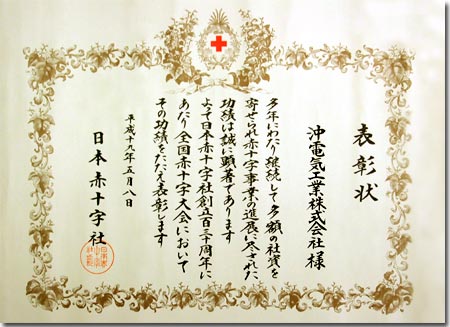 表彰状
沖電気工業株式会社 様
多年にわたり継続して多額の社資を
寄せられ赤十字事業の進展に尽された
功績は誠に顕著であります
よって日本赤十字社創立百三十周年に
あたり全国赤十字大会において
その功績をたたえ表彰します
平成十九年五月八日
日本赤十字社